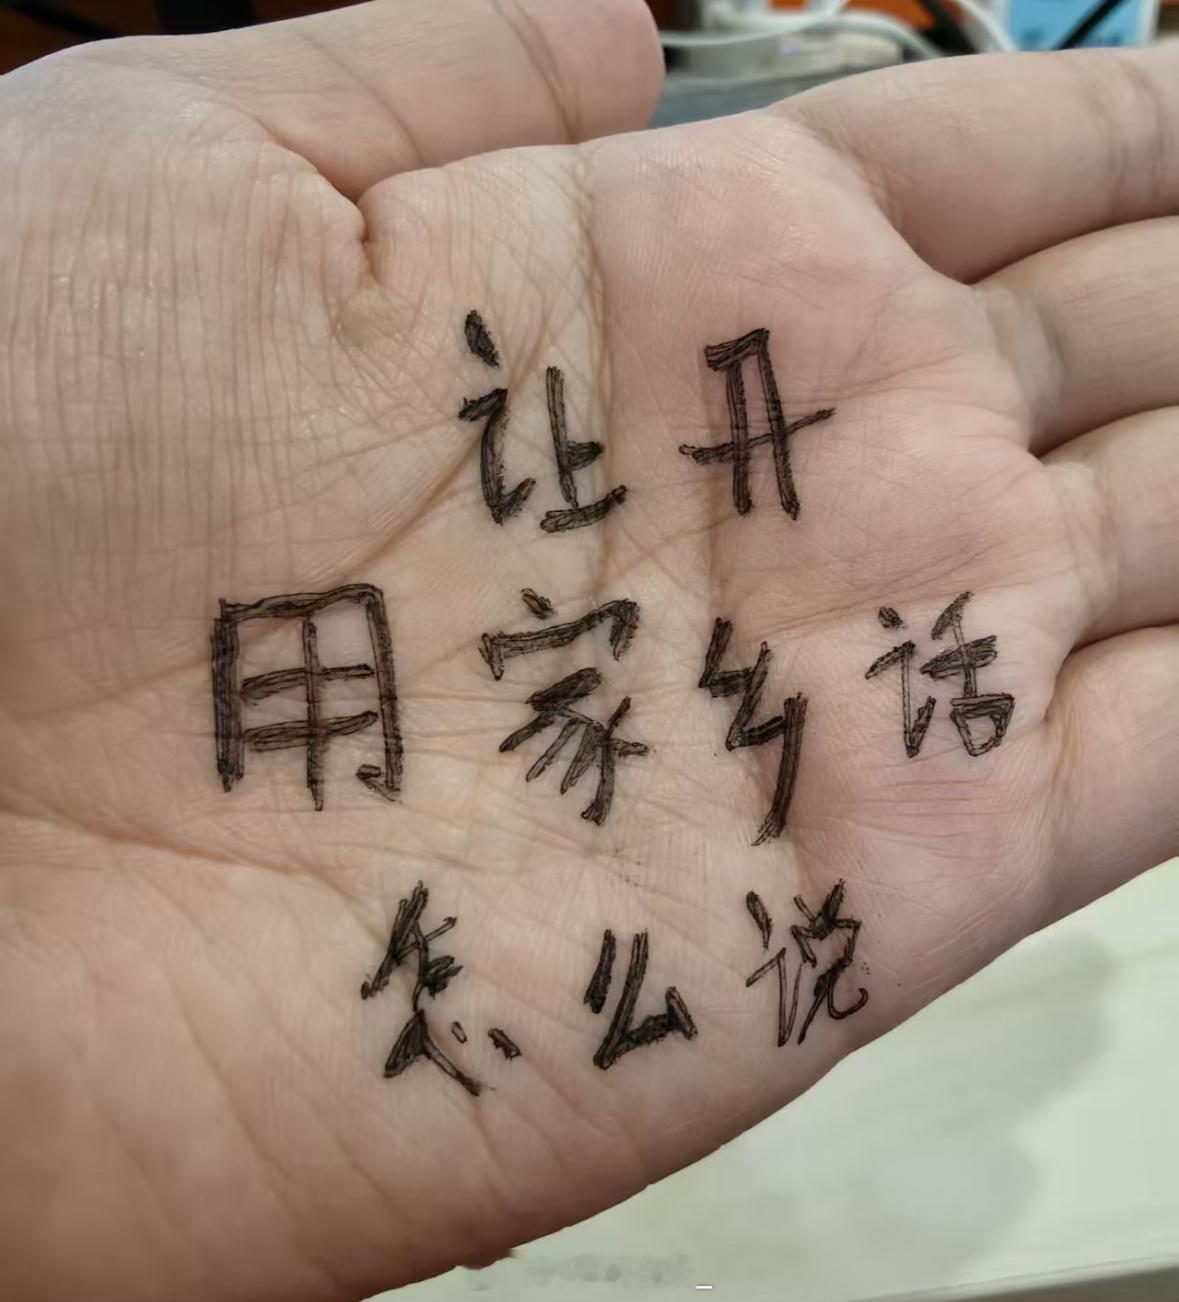 让开
用家乡话
怎么说